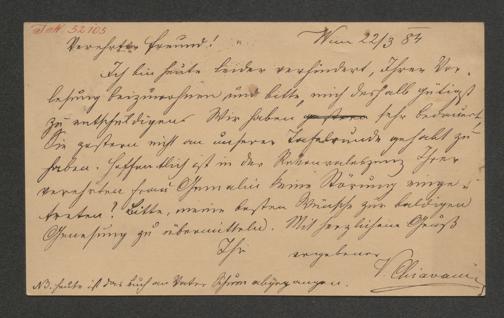 J. N. 52105
Wien 22/3 84
Verehrter Freund!
Ich bin heute leider verhindert, Ihrer Vor-
lesung beizuwohnen und bitte, mich deshalb gütigst
zu entschuldigen. Wir haben gestern sehr bedauert,
Sie gestern nicht an unserer Tafelrunde gehabt zu
haben. Hoffentlich ist in der Reconvalescenz Ihrer
verehrten Frau Gemalin keine Störung einge-
treten! Bitte, meine besten Wünsche zur baldigen
Genesung zu übermitteln. Mit herzlichem Gruß
Ihr ergebener
V. Chavanne
NB. heute ist das Buch an Vater abgegangen.